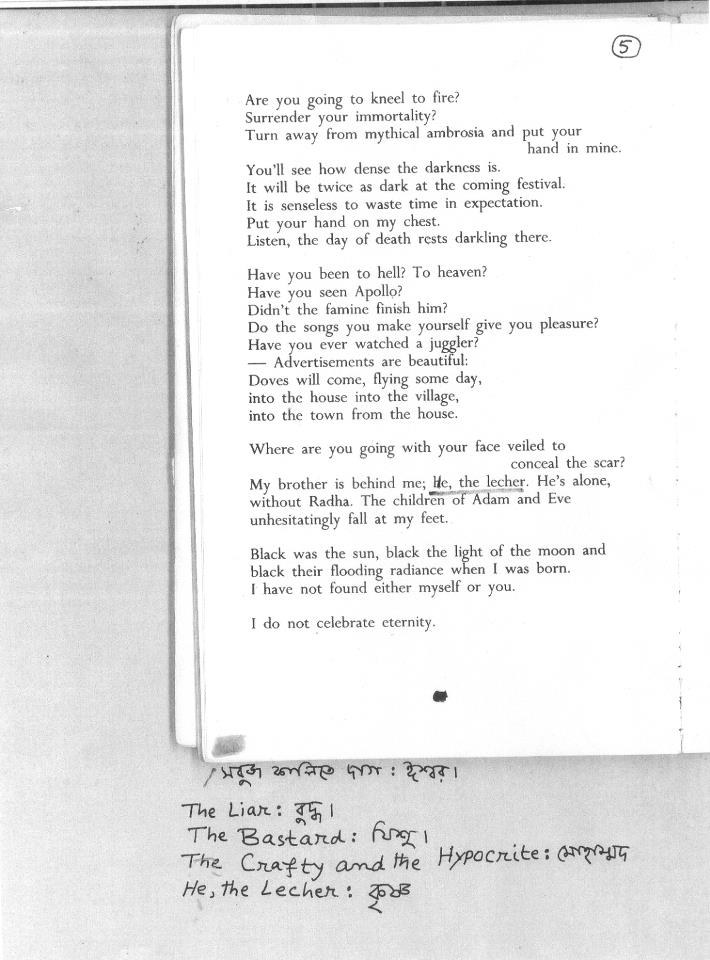 5
Are you going to kneel to fire?
Surrender your immortality?
Turn away from mythical ambrosia and put your
hand in mine.
You'll see how dense the darkness is.
It will be twice as dark at the coming festival.
It is senseless to waste time in expectation.
Put your hand on my chest.
Listen, the day of death rests darkling there.
Have you been to hell? To heaven?
Have you seen Apollo?
Didn't the famine finish him?
Do the songs you make yourself give you pleasure?
Have you ever watched a juggler?
— Advertisements are beautiful:
Doves will come, flying some day,
into the house into the village,
into the town from the house.
Where are you going with your face veiled to
conceal the scar?
My brother is behind me; He, the lecher. He's alone,
without Radha. The children of Adam and Eve
unhesitatingly fall at my feet.
Black was the sun, black the light of the moon and
black their flooding radiance when I was born.
I have not found either myself or you.
I do not celebrate eternity.
সবুজ কালিতে দাগ : ঈশ্বর।
The Liar: বুদ্ধ।
The Bastard: যিশু।
The Crafty and the Hypocrite: মোহাম্মদ
He, the Lecher: কৃষ্ণ